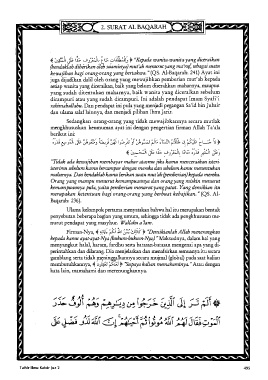 2. SURAT AL BAQARAH
وَلِلْمُطَلَّقَاتِ مَتَاعٌ بِالْمَعْرُوفِ حَقًّا عَلَى الْمُتَّقِينَ "Kepada wanita-wanita yang diceraikan
(hendaklah diberikan oleh suaminya) mut'ah menurut yang ma'ruf, sebagai suatu
kewajiban bagi orang-orang yang bertakwa." (QS. Al-Baqarah: 241) Ayat ini
juga dijadikan dalil oleh orang yang mewajibkan pemberian mut'ah kepada
setiap wanita yang diceraikan, baik yang belum ditentukan maharnya, maupun
yang sudah ditentukan maharnya, baik wanita yang diceraikan sebelum
dicampuri atau yang sudah dicampuri. Ini adalah pendapat Imam Syafi'i
rahimahullahu. Dan pendapat ini pula yang menjadi pegangan Sa'id bin Jubair
dan ulama salaf lainnya, dan menjadi pilihan Ibnu Jarir.
Sedangkan orang-orang yang tidak mewajibkannya secara mutlak
mengkhususkan keumuman ayat ini dengan pengertian firman Allah Ta'ala
berikut ini:
"Tidak ada kewajiban membayar mahar atasmu jika kamu menceraikan isteri-
isterimu sebelum kamu bercampur dengan mereka dan sebelum kamu menentukan
maharnya. Dan hendaklah kamu berikan suatu mut'ah (pemberian) kepada mereka.
Orang yang mampu menurut kemampuannya dan orang yang miskin menurut
kemampuannya pula, yaitu pemberian menurut yang patut. Yang demikian itu
merupakan ketentuan bagi orang-orang yang berbuat kebajikan." (QS. Al-
Baqarah: 236).
Ulama kelompok pertama menyatakan bahwa hal itu merupakan bentuk
penyebutan beberapa bagian yang umum, sehingga tidak ada pengkhususan me-
nurut pendapat yang masyhur. Wallahu a'lam.
Firman-Nya, كَذَٰلِكَ يُبَيِّنُ اللَّهُ لَكُمْ آيَاتِهِ "Demikianlah Allah menerangkan
kepada kamu ayat-ayat-Nya (hukum-hukum-Nya)." Maksudnya, dalam hal yang
menyangkut halal, haram, fardhu serta batasan-batasan mengenai apa yang di-
perintahkan dan dilarang. Dia menjelaskan dan menafsirkan semuanya itu secara
gamblang serta tidak meninggalkannya secara mujmal (global) pada saat kalian
membutuhkannya, لَعَلَّكُمْ تَعْقِلُونَ "Supaya kalian memahaminya." Atau dengan
kata lain, memahami dan merenungkannya.
أَلَمْ تَرَ إِلَى الَّذِينَ خَرَجُوا مِن دِيَارِهِمْ وَهُمْ أُلُوفٌ حَذَرَ
الْمَوْتِ فَقَالَ لَهُمُ اللَّهُ مُوتُوا ثُمَّ أَحْيَاهُمْ إِنَّ اللَّهَ لَذُو فَضْلٍ عَلَى
Tafsir Ibnu Katsir Juz 2